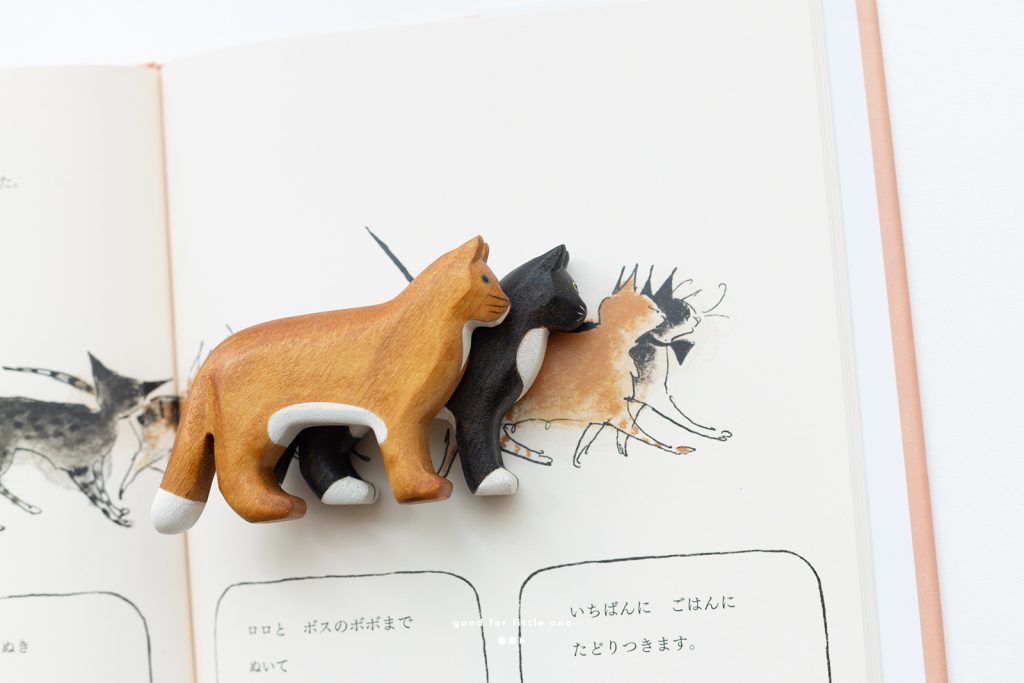 た。
ぬき
ロロと　ボスのボボまで
ぬいて
いちばんに　ごはんに
たどりつきます。
good for little one